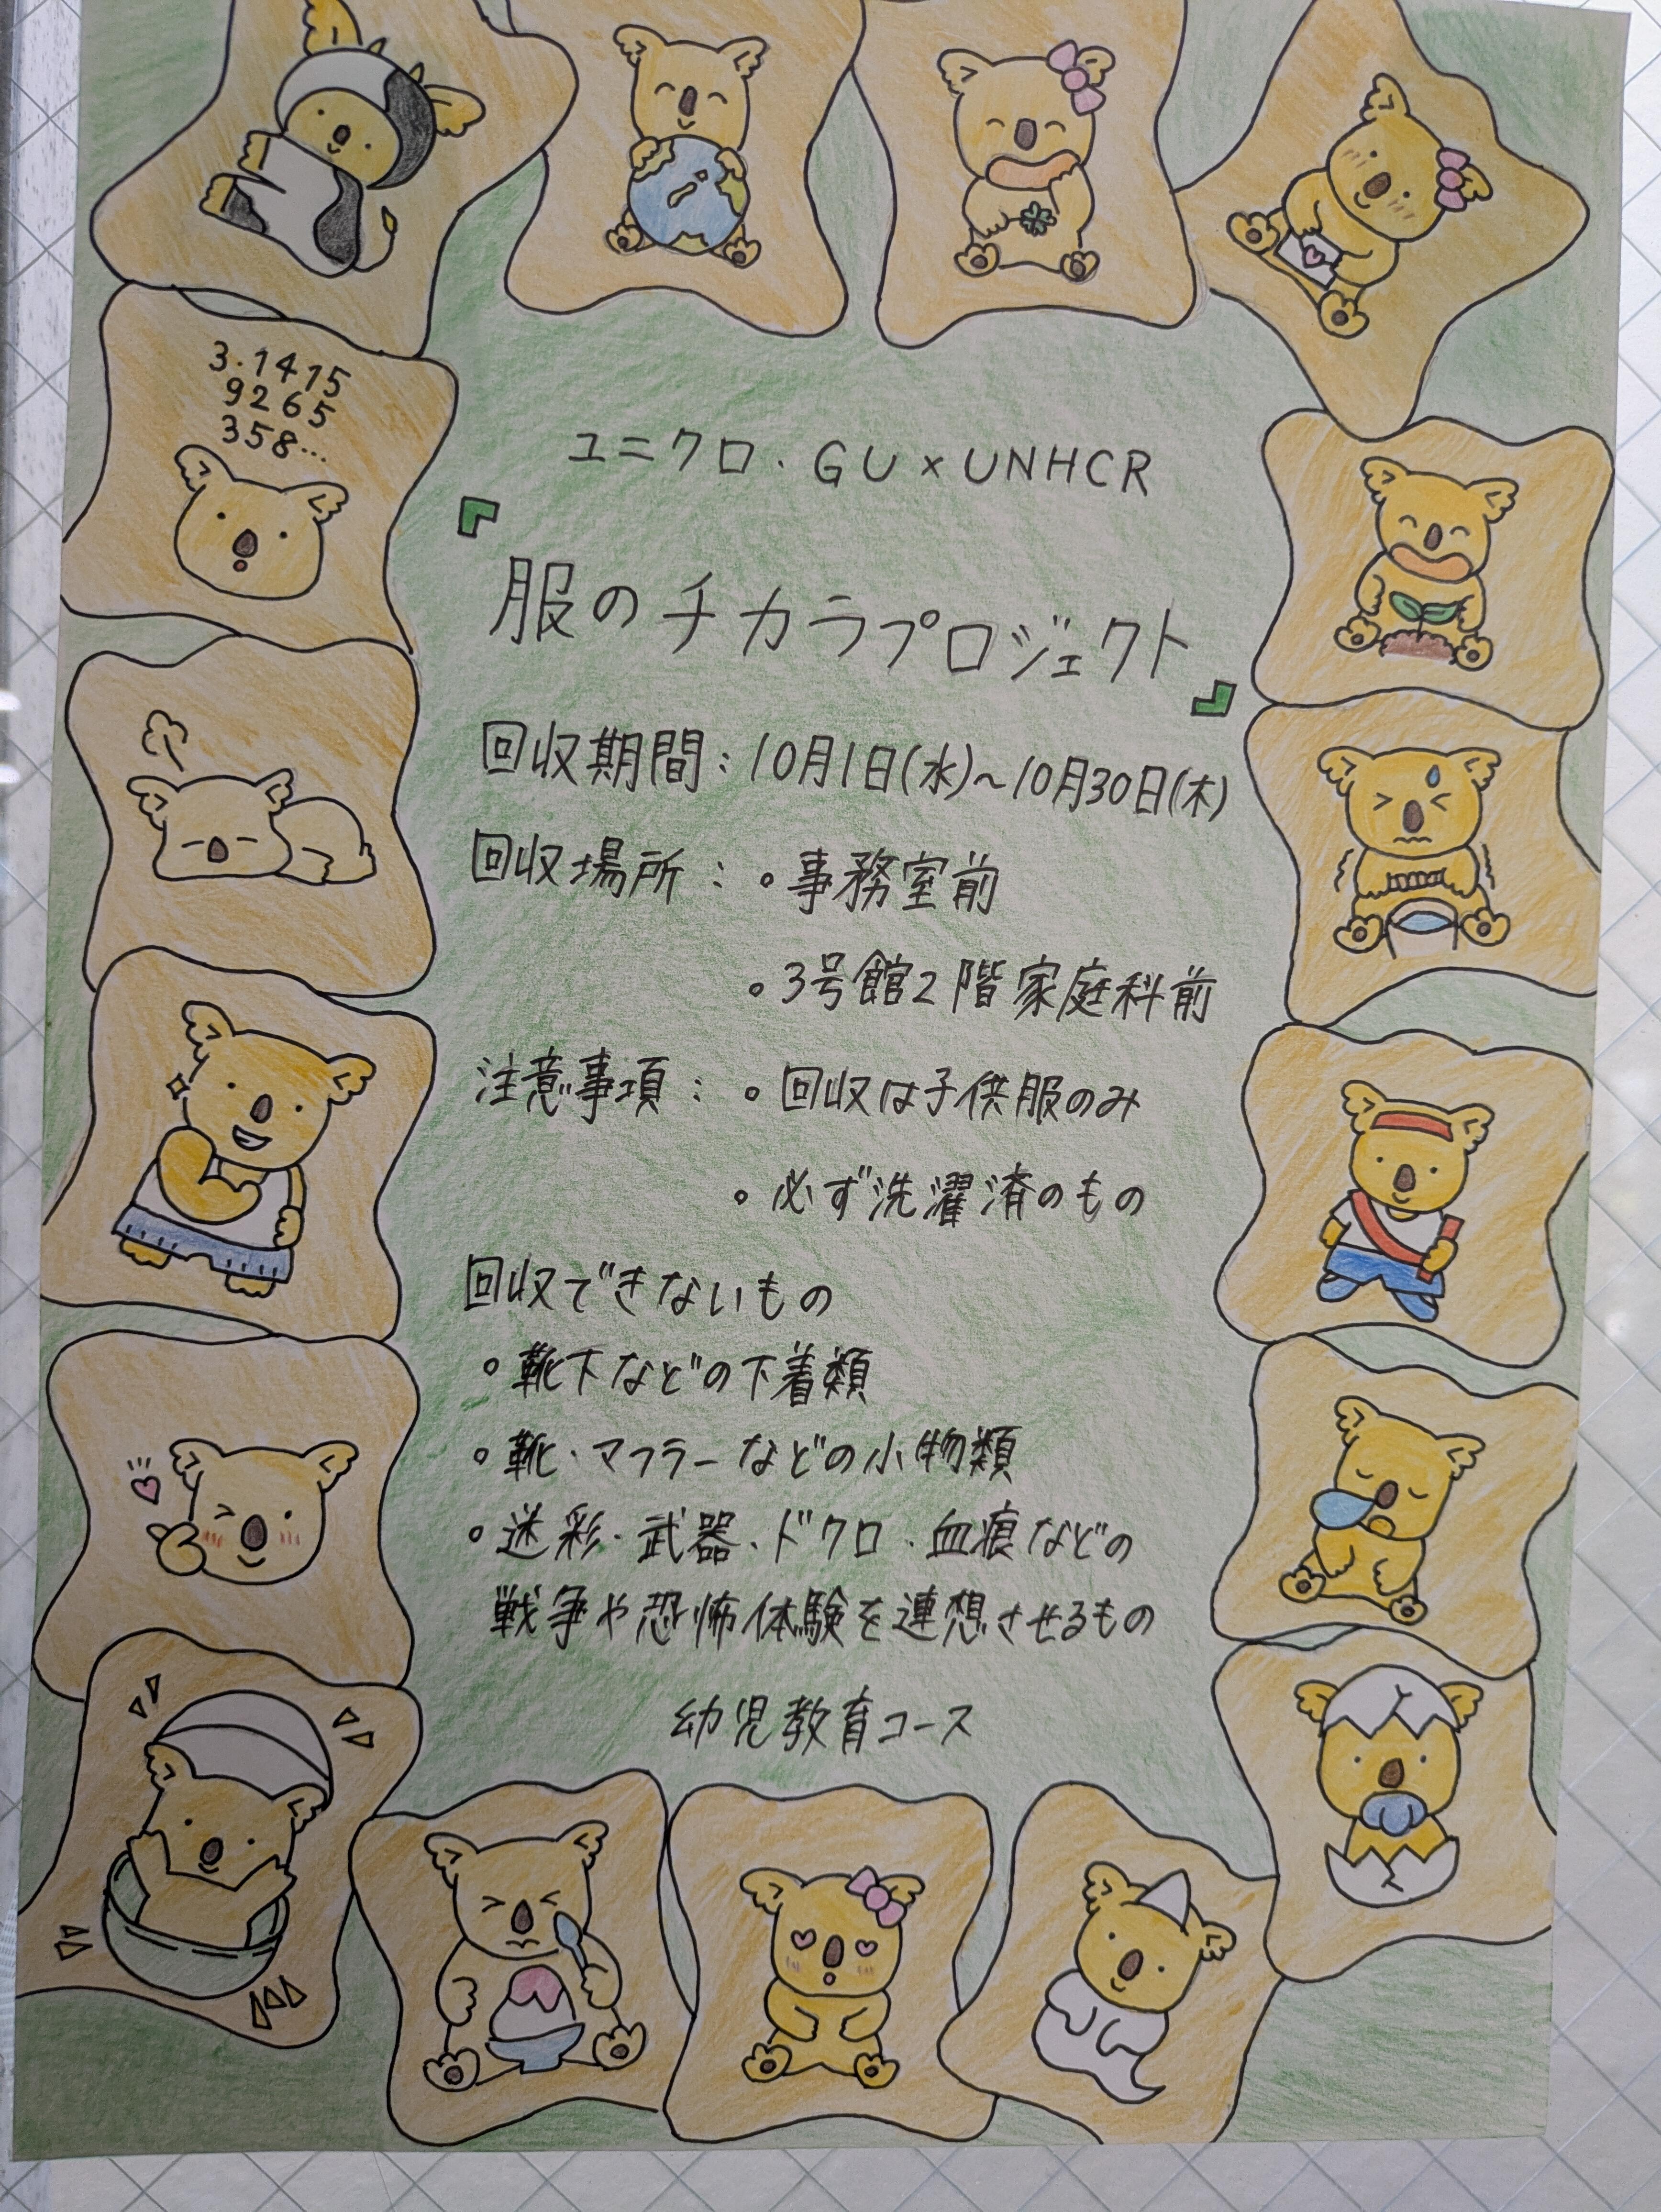 3.1415
9265
358...
ユニクロ・GU×UNHCR
『服のチカラプロジェクト』
回収期間:10月1日(水)~10月30日(木)
回収場所:。事務室前
。3号館2階家庭科前
注意事項:。回収は子供服のみ
。必ず洗濯済のもの
回収できないもの
。靴下などの下着類
。靴・マフラーなどの小物類
。迷彩・武器・ドクロ・血痕などの
戦争や恐怖体験を連想させるもの
幼児教育コース